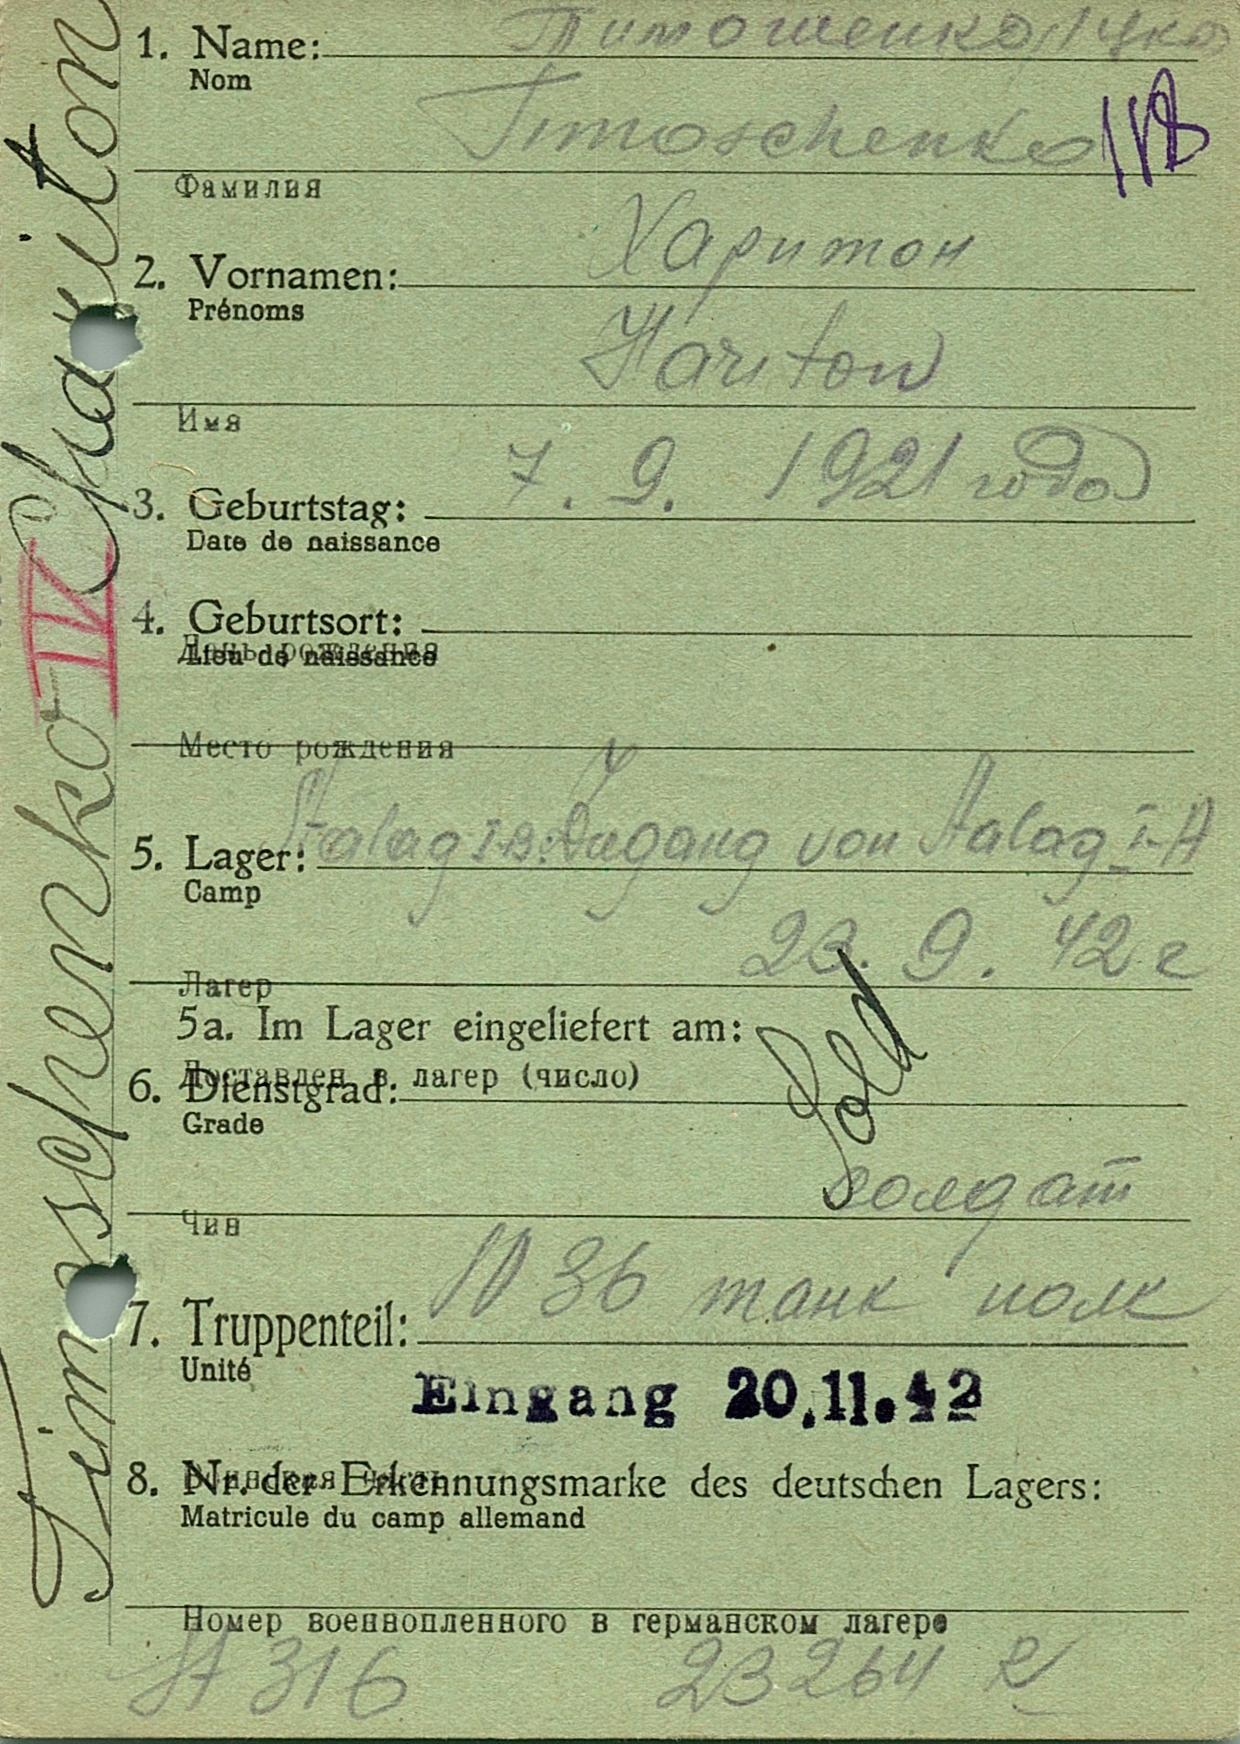 1. Name: Тимошенко
Nom
Timoschenko
Фамилия
2. Vornamen: Харитон
Prénoms
Hariton
Имя
3. Geburtstag: 7. 9. 1921 года
Date de naissance
4. Geburtsort:
День рождения
Lieu de naissance
Место рождения
5. Lager: Stalag I-B. Zugang von Stalag I-A
Camp
23. 9. 42 г
Лагер
5a. Im Lager eingeliefert am:
Доставлен в лагер (число)
6. Dienstgrad: Sold
Grade
солдат
Чин
7. Truppenteil: N 36 танк полк
Unité
Eingang 20.11.42
8. Nr. der Erkennungsmarke des deutschen Lagers:
Matricule du camp allemand
Номер военнопленного в германском лагере
St 316 23264
Timoschenko Chariton
IV